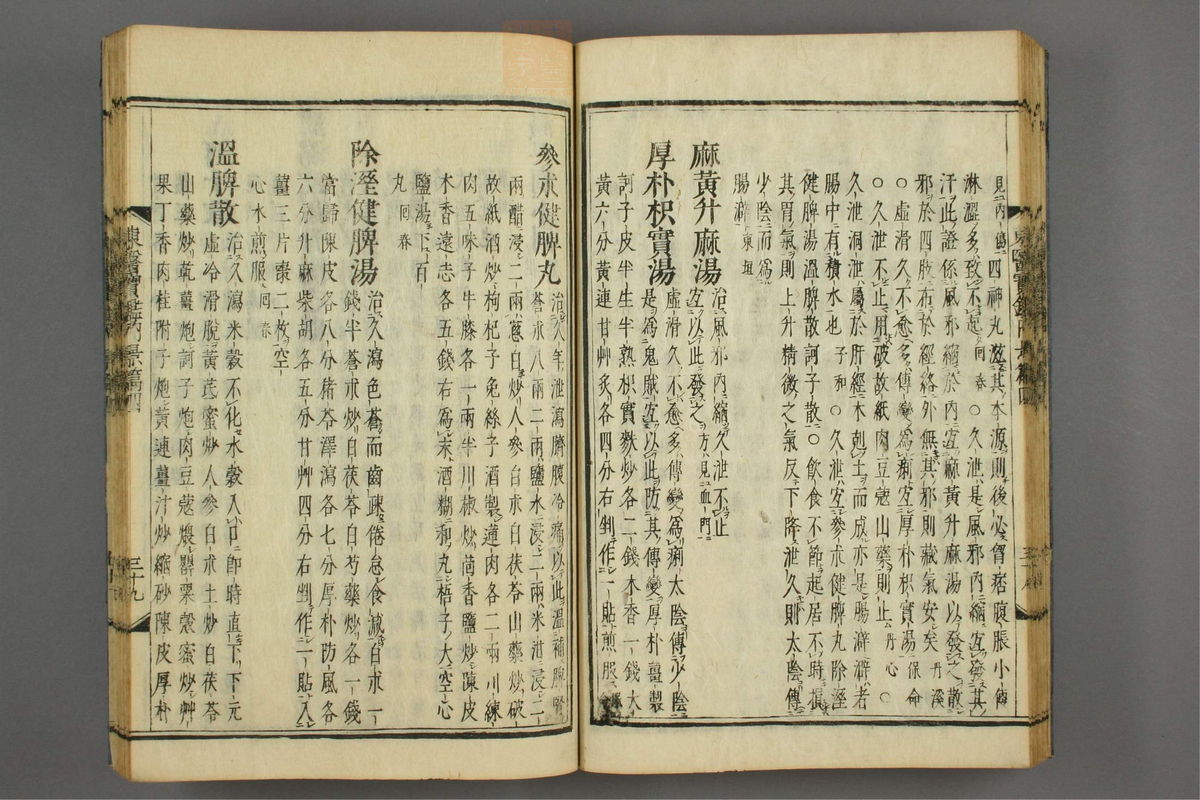 見內傷四神丸滋其本源則後必胷痞腹脹小便
淋澁多致不起回春○久泄是風邪內縮宜發其
汗此證係風邪縮於內宜麻黃升麻湯以發之散
邪於四肢布於經絡外無其邪則藏氣安矣丹溪
○虛滑久不愈多傳變爲痢宜厚朴枳實湯保命
○久泄不止用破故紙肉豆蔻山藥則止丹心○
久泄洞泄屬於肝經木剋土而成亦是腸澼澼者
腸中有積水也子和○久泄宜參朮健脾丸除溼
健脾湯溫脾散訶子散○飮食不節起居不時損
其胃氣則上升精微之氣反下降泄久則太陰傳
少陰而爲
腸澼東垣
麻黃升麻湯治風邪內縮久泄不止
宜以此發之方見血門
厚朴枳實湯虛滑久不愈多傳變爲痢太陰傳少陰
是爲鬼賊宜以此防其傳變厚朴薑製
訶子皮半生半熟枳實麩炒各二錢木香一錢大
黃六分黃連甘艸炙各四分右剉作一貼煎服保命
參朮健脾丸治久年泄瀉臍腹冷痛以此溫補脾腎
蒼朮八兩二兩鹽水浸二兩米泔浸二
兩醋浸二兩葱白炒人參白朮白茯苓山藥炒破
故紙酒炒枸杞子兔絲子酒製蓮肉各二兩川練
肉五味子牛膝各一兩半川椒炒茴香鹽炒陳皮
木香遠志各五錢右爲末酒糊和丸梧子大空心
鹽湯下百
丸回春
除溼健脾湯治久瀉色蒼而齒疎倦怠食減白朮一
錢半蒼朮炒白茯苓白芍藥炒各一錢
當歸陳皮各八分猪苓澤瀉各七分厚朴防風各
六分升麻柴胡各五分甘艸四分右剉作一貼入
薑三片棗二枚空
心水煎服回春
溫脾散治久瀉米穀不化水穀入口卽時直下下元
虛冷滑脫黃芪蜜炒人參白朮土炒白茯苓
山藥炒乾薑炮訶子炮肉豆蔻煨罌粟殼蜜炒艸
果丁香肉桂附子炮黃連薑汁炒縮砂陳皮厚朴
三十九